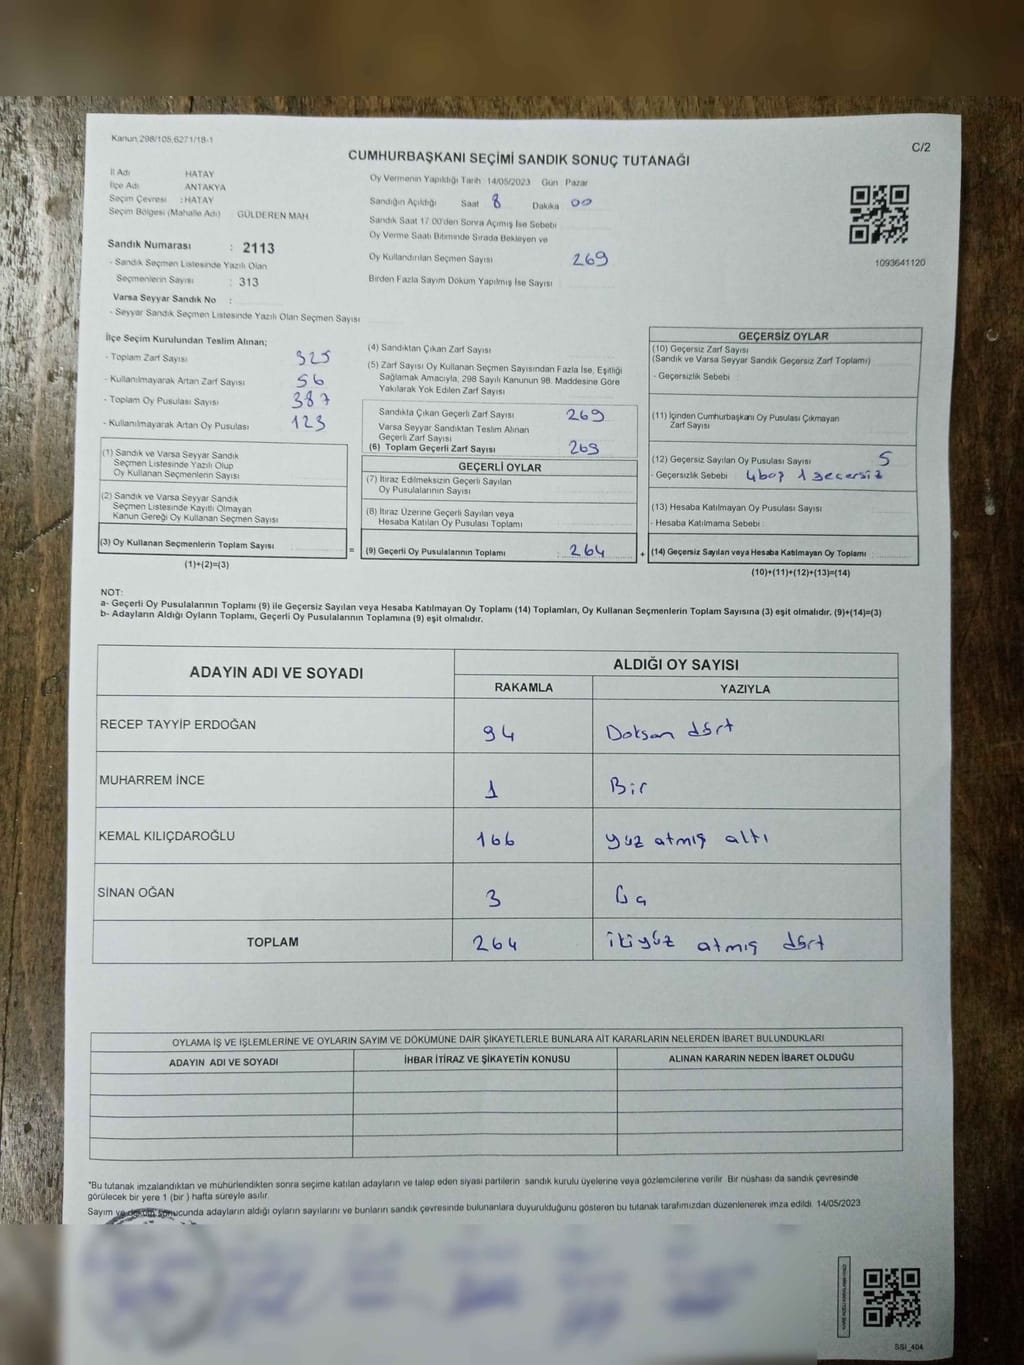 Kanun 298/105,6271/18-1
C/2
CUMHURBAŞKANI SEÇİMİ SANDIK SONUÇ TUTANAĞI
İl Adı HATAY
İlçe Adı ANTAKYA
Seçim Çevresi : HATAY
Seçim Bölgesi (Mahalle Adı) GÜLDEREN MAH
Sandık Numarası : 2113
- Sandık Seçmen Listesinde Yazılı Olan
Seçmenlerin Sayısı : 313
Varsa Seyyar Sandık No :
- Seyyar Sandık Seçmen Listesinde Yazılı Olan Seçmen Sayısı
Oy Vermenin Yapıldığı Tarih : 14/05/2023 Gün Pazar
Sandığın Açıldığı Saat 8 Dakika 00
Sandık Saat 17:00'den Sonra Açılmış İse Sebebi
Oy Verme Saati Bitiminde Sırada Bekleyen ve
Oy Kullandırılan Seçmen Sayısı 269
Birden Fazla Sayım Döküm Yapılmış İse Sayısı
1093641120
İlçe Seçim Kurulundan Teslim Alınan;
- Toplam Zarf Sayısı 325
- Kullanılmayarak Artan Zarf Sayısı 56
- Toplam Oy Pusulası Sayısı 387
- Kullanılmayarak Artan Oy Pusulası 123
(1) Sandık ve Varsa Seyyar Sandık
Seçmen Listesinde Yazılı Olup
Oy Kullanan Seçmenlerin Sayısı
(2) Sandık ve Varsa Seyyar Sandık
Seçmen Listesinde Kayıtlı Olmayan
Kanun Gereği Oy Kullanan Seçmen Sayısı
(3) Oy Kullanan Seçmenlerin Toplam Sayısı
(1)+(2)=(3)
=
(4) Sandıktan Çıkan Zarf Sayısı
(5) Zarf Sayısı Oy Kullanan Seçmen Sayısından Fazla İse, Eşitliği
Sağlamak Amacıyla, 298 Sayılı Kanunun 98. Maddesine Göre
Yakılarak Yok Edilen Zarf Sayısı
Sandıkta Çıkan Geçerli Zarf Sayısı 269
Varsa Seyyar Sandıktan Teslim Alınan
Geçerli Zarf Sayısı
(6) Toplam Geçerli Zarf Sayısı 269
GEÇERLİ OYLAR
(7) İtiraz Edilmeksizin Geçerli Sayılan
Oy Pusulalarının Sayısı
(8) İtiraz Üzerine Geçerli Sayılan veya
Hesaba Katılan Oy Pusulası Toplamı
(9) Geçerli Oy Pusulalarının Toplamı : 264
+
GEÇERSİZ OYLAR
(10) Geçersiz Zarf Sayısı
(Sandık ve Varsa Seyyar Sandık Geçersiz Zarf Toplamı)
- Geçersizlik Sebebi
(11) İçinden Cumhurbaşkanı Oy Pusulası Çıkmayan
Zarf Sayısı
(12) Geçersiz Sayılan Oy Pusulası Sayısı 5
- Geçersizlik Sebebi 4 boş 1 geçersiz
(13) Hesaba Katılmayan Oy Pusulası Sayısı
- Hesaba Katılmama Sebebi
(14) Geçersiz Sayılan veya Hesaba Katılmayan Oy Toplamı
(10)+(11)+(12)+(13)=(14)
NOT:
a- Geçerli Oy Pusulalarının Toplamı (9) ile Geçersiz Sayılan veya Hesaba Katılmayan Oy Toplamı (14) Toplamları, Oy Kullanan Seçmenlerin Toplam Sayısına (3) eşit olmalıdır. (9)+(14)=(3)
b- Adayların Aldığı Oyların Toplamı, Geçerli Oy Pusulalarının Toplamına (9) eşit olmalıdır.
ADAYIN ADI VE SOYADI
ALDIĞI OY SAYISI
RAKAMLA YAZIYLA
RECEP TAYYİP ERDOĞAN 94 Doksan dört
MUHARREM İNCE 1 Bir
KEMAL KILIÇDAROĞLU 166 yüz atmış altı
SİNAN OĞAN 3 Üç
TOPLAM 264 ikiyüz atmış dört
OYLAMA İŞ VE İŞLEMLERİNE VE OYLARIN SAYIM VE DÖKÜMÜNE DAİR ŞİKAYETLERLE BUNLARA AİT KARARLARIN NELERDEN İBARET BULUNDUKLARI
ADAYIN ADI VE SOYADI İHBAR İTİRAZ VE ŞİKAYETİN KONUSU ALINAN KARARIN NEDEN İBARET OLDUĞU
*Bu tutanak imzalandıktan ve mühürlendikten sonra seçime katılan adayların ve talep eden siyasi partilerin sandık kurulu üyelerine veya gözlemcilerine verilir. Bir nüshası da sandık çevresinde
görülecek bir yere 1 (bir ) hafta süreyle asılır.
Sayım ve döküm sonucunda adayların aldığı oyların sayılarını ve bunların sandık çevresinde bulunanlara duyurulduğunu gösteren bu tutanak tarafımızdan düzenlenerek imza edildi. 14/05/2023
SSI_404